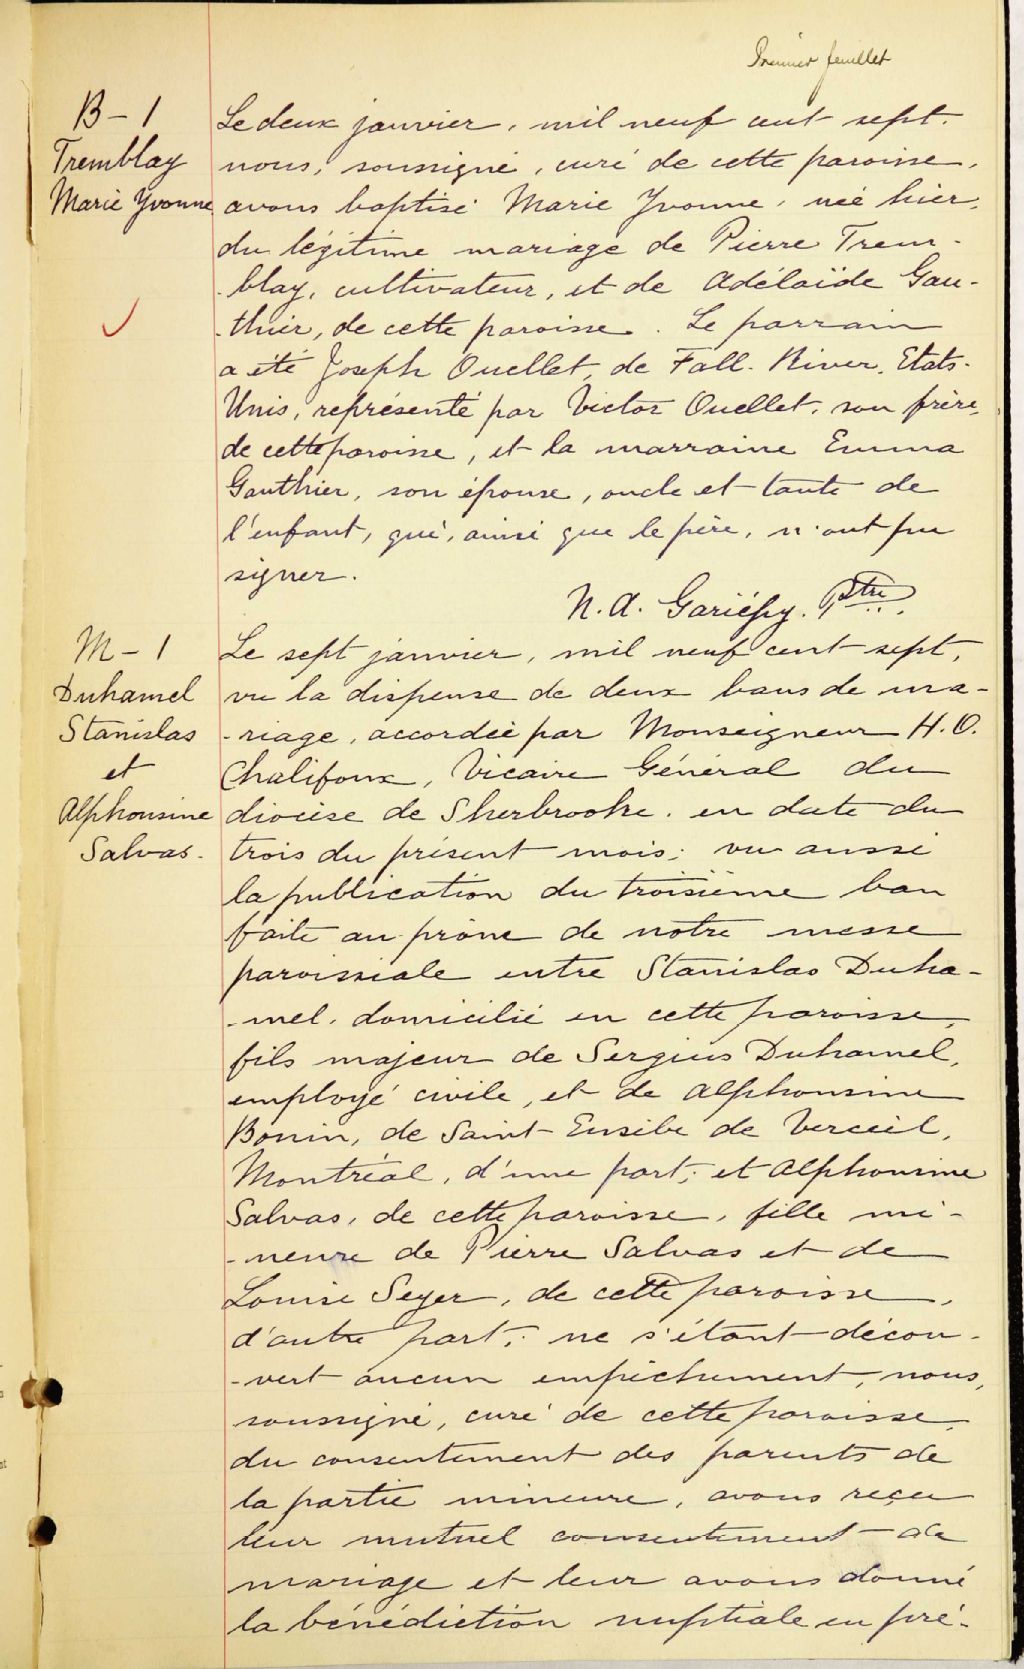 Premier feuillet
B - 1
Tremblay
Marie Yvonne
Le deux janvier, mil neuf cent sept.
nous, soussigné, curé de cette paroisse,
avons baptisé Marie Yvonne, née hier,
du légitime mariage de Pierre Trem-
-blay, cultivateur, et de Adélaïde Gau-
-thier, de cette paroisse. Le parrain
a été Joseph Ouellet, de Fall-River, Etats-
Unis, représenté par Victor Ouellet, son frère,
de cette paroisse, et la marraine Emma
Gauthier, son épouse, oncle et tante de
l'enfant, qui, ainsi que le père, n'ont pu
signer.
N. A. Gariépy. Ptre
M - 1
Duhamel
Stanislas
et
Alphonsine
Salvas.
Le sept janvier, mil neuf cent sept,
vu la dispense de deux bans de ma-
-riage, accordée par Monseigneur H. O.
Chalifoux, Vicaire Général du
diocèse de Sherbrooke, en date du
trois du présent mois; vu aussi
la publication du troisième ban
faite au prône de notre messe
paroissiale entre Stanislas Duha-
-mel, domicilié en cette paroisse,
fils majeur de Sergius Duhamel,
employé civile, et de Alphonsine
Bonin, de Saint Eusèbe de Verceil,
Montréal, d'une part; et Alphonsine
Salvas, de cette paroisse, fille mi-
-neure de Pierre Salvas et de
Louise Seyer, de cette paroisse,
d'autre part; ne s'étant décou-
-vert aucun empêchement, nous,
soussigné, curé de cette paroisse,
du consentement des parents de
la partie mineure, avons reçu
leur mutuel consentement de
mariage et leur avons donné
la bénédiction nuptiale en pré-